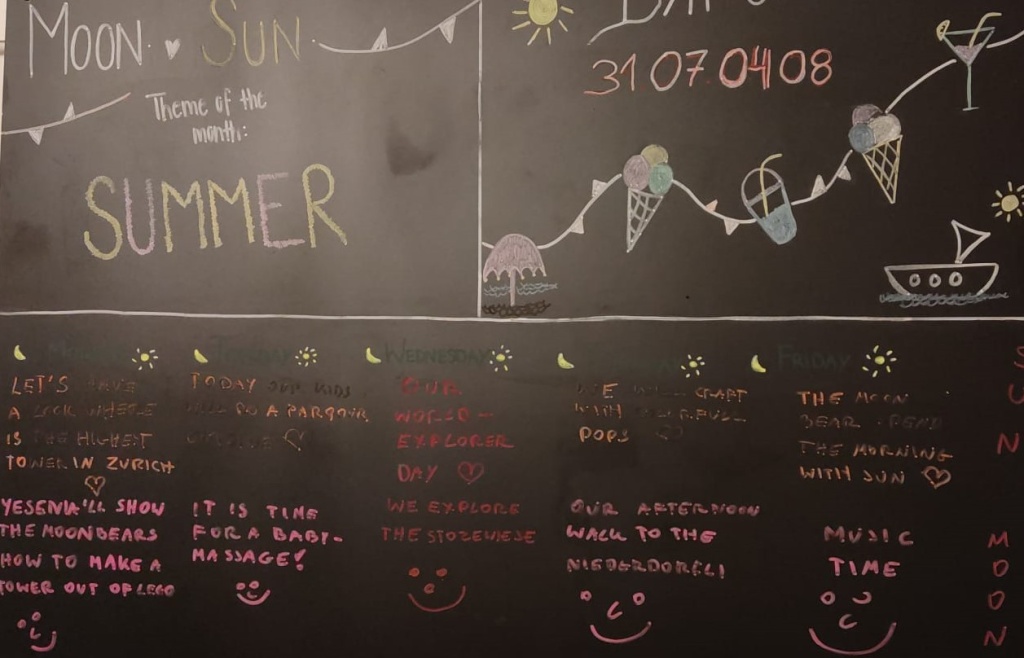 MOON ♥ SUN
Theme of the
month:
SUMMER
31 07 0408
MONDAY
LET'S HAVE
A LOOK WHERE
IS THE HIGHEST
TOWER IN ZURICH
♡
YESENIA'LL SHOW
THE MOONBEARS
HOW TO MAKE A
TOWER OUT OF LEGO
TUESDAY
TODAY OUR KIDS
WILL DO A PARQOUR
OUTSIDE ♡
IT IS TIME
FOR A BABY-
MASSAGE!
WEDNESDAY
OUR
WORLD-
EXPLORER
DAY ♡
WE EXPLORE
THE STOZEWIESE
THURSDAY
WE WILL CRAFT
WITH COLORFULL
POPS ♡
OUR AFTERNOON
WALK TO THE
NIEDERDORFLI
FRIDAY
THE MOON
BEAR SPEND
THE MORNING
WITH SUN ♡
MUSIC
TIME
S
U
N
M
O
O
N